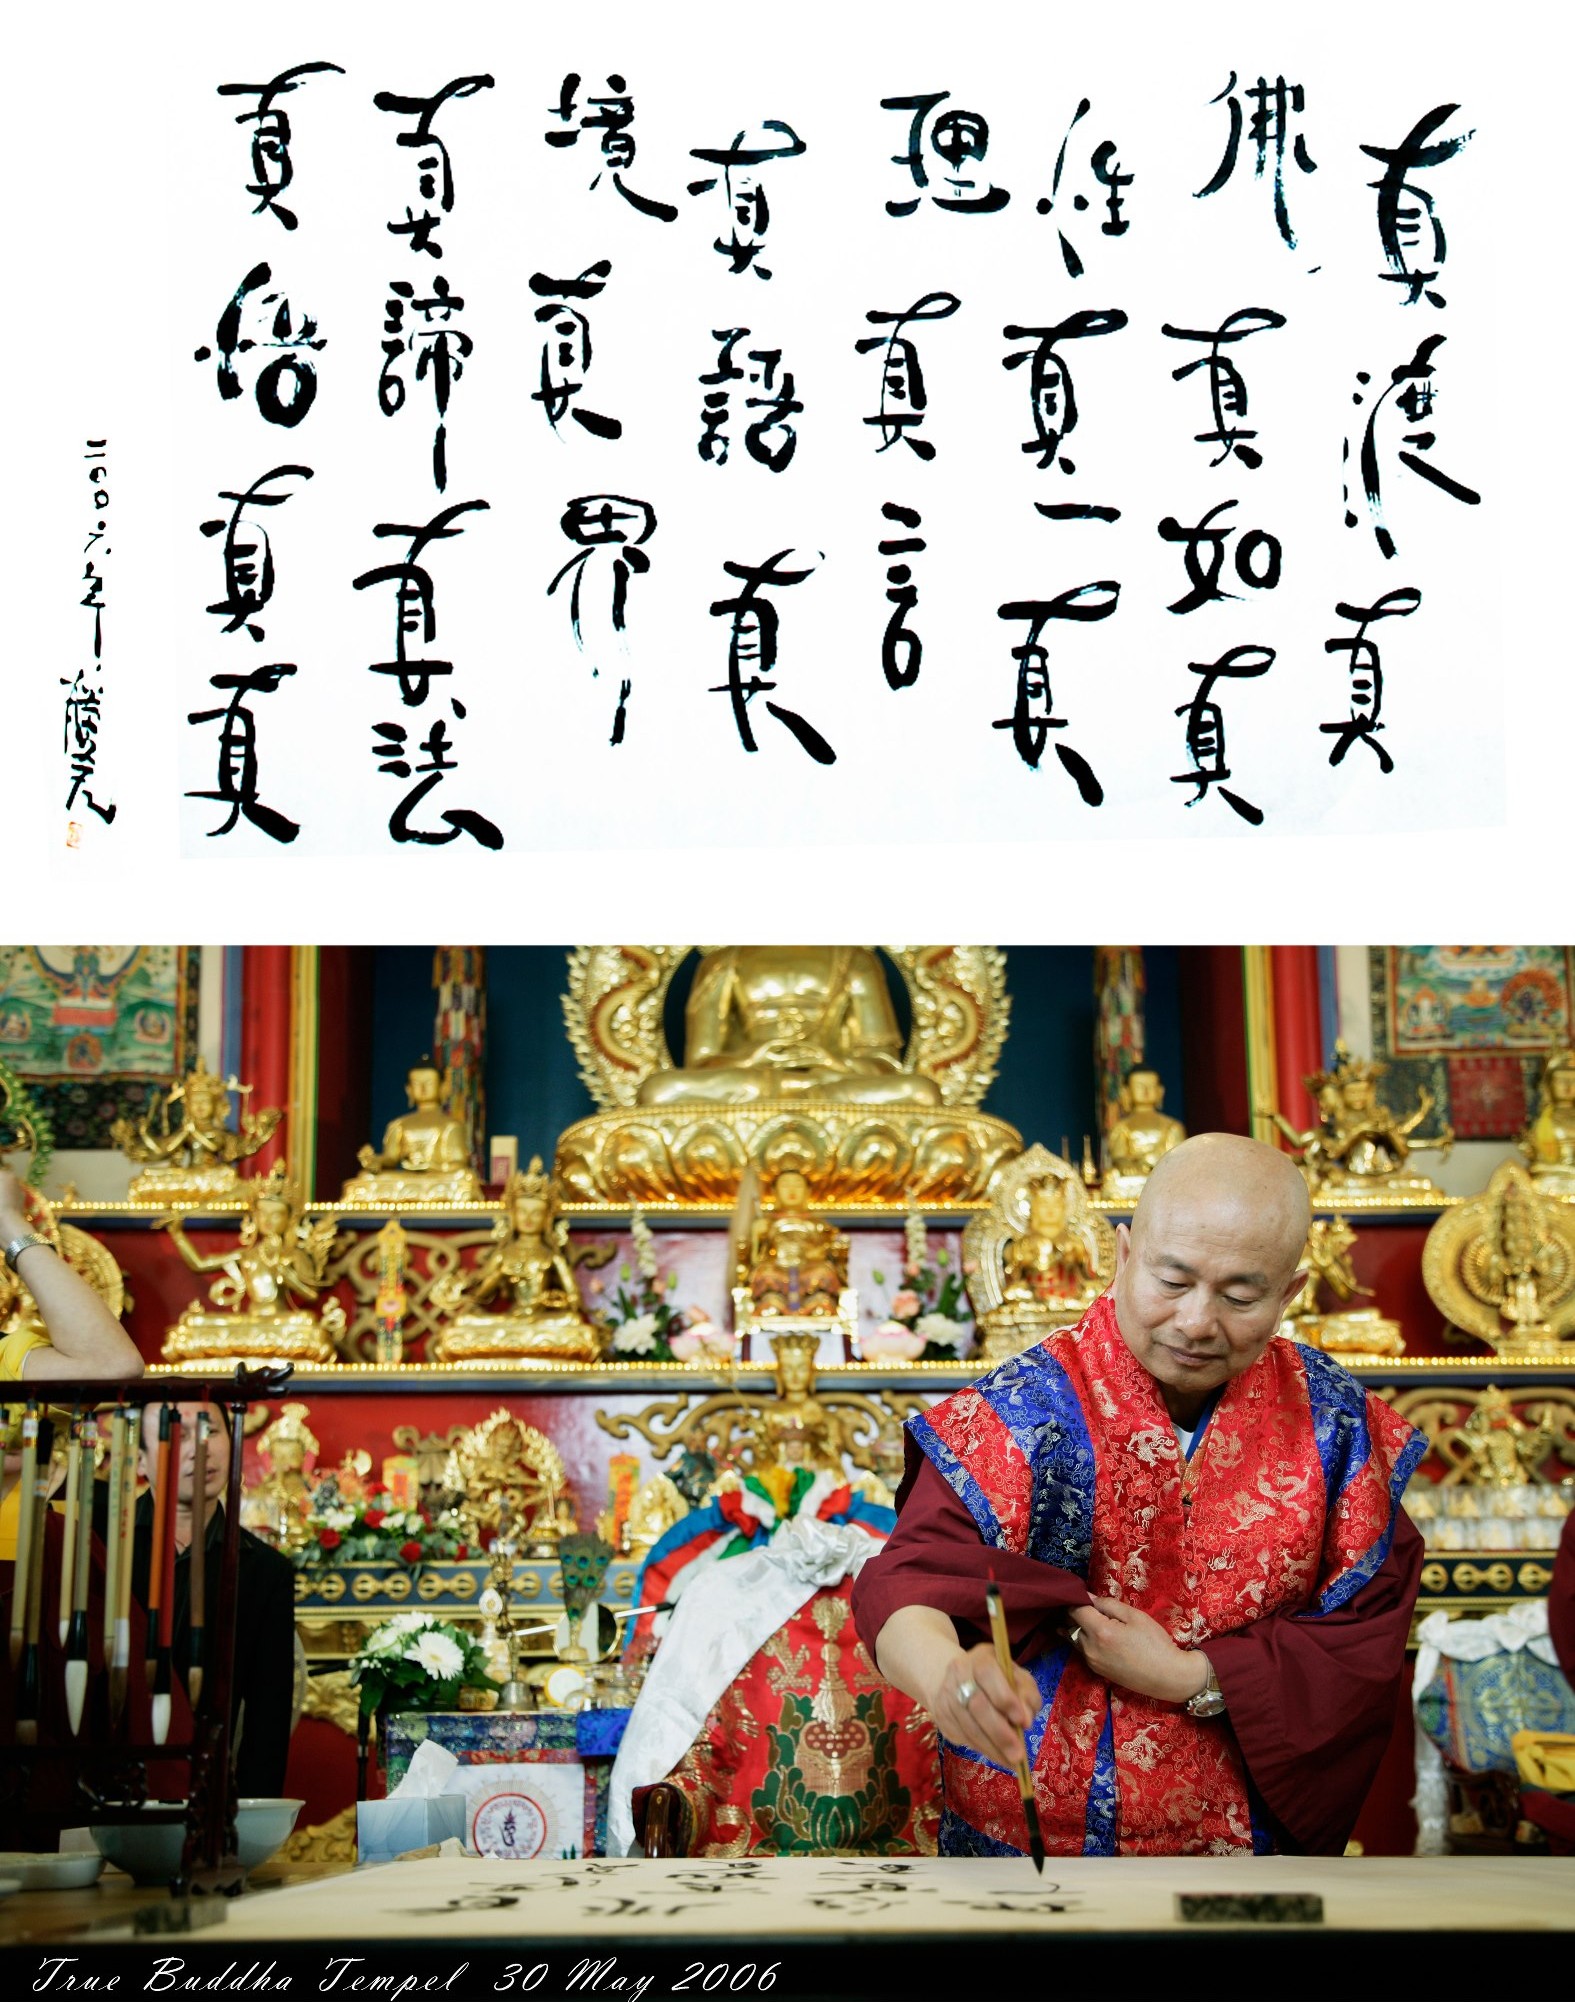 真渡真
佛真如真
性真一真
理真言
真語真
境真界
真諦真法
真悟真真
二00六年
True Buddha Tempel 30 May 2006